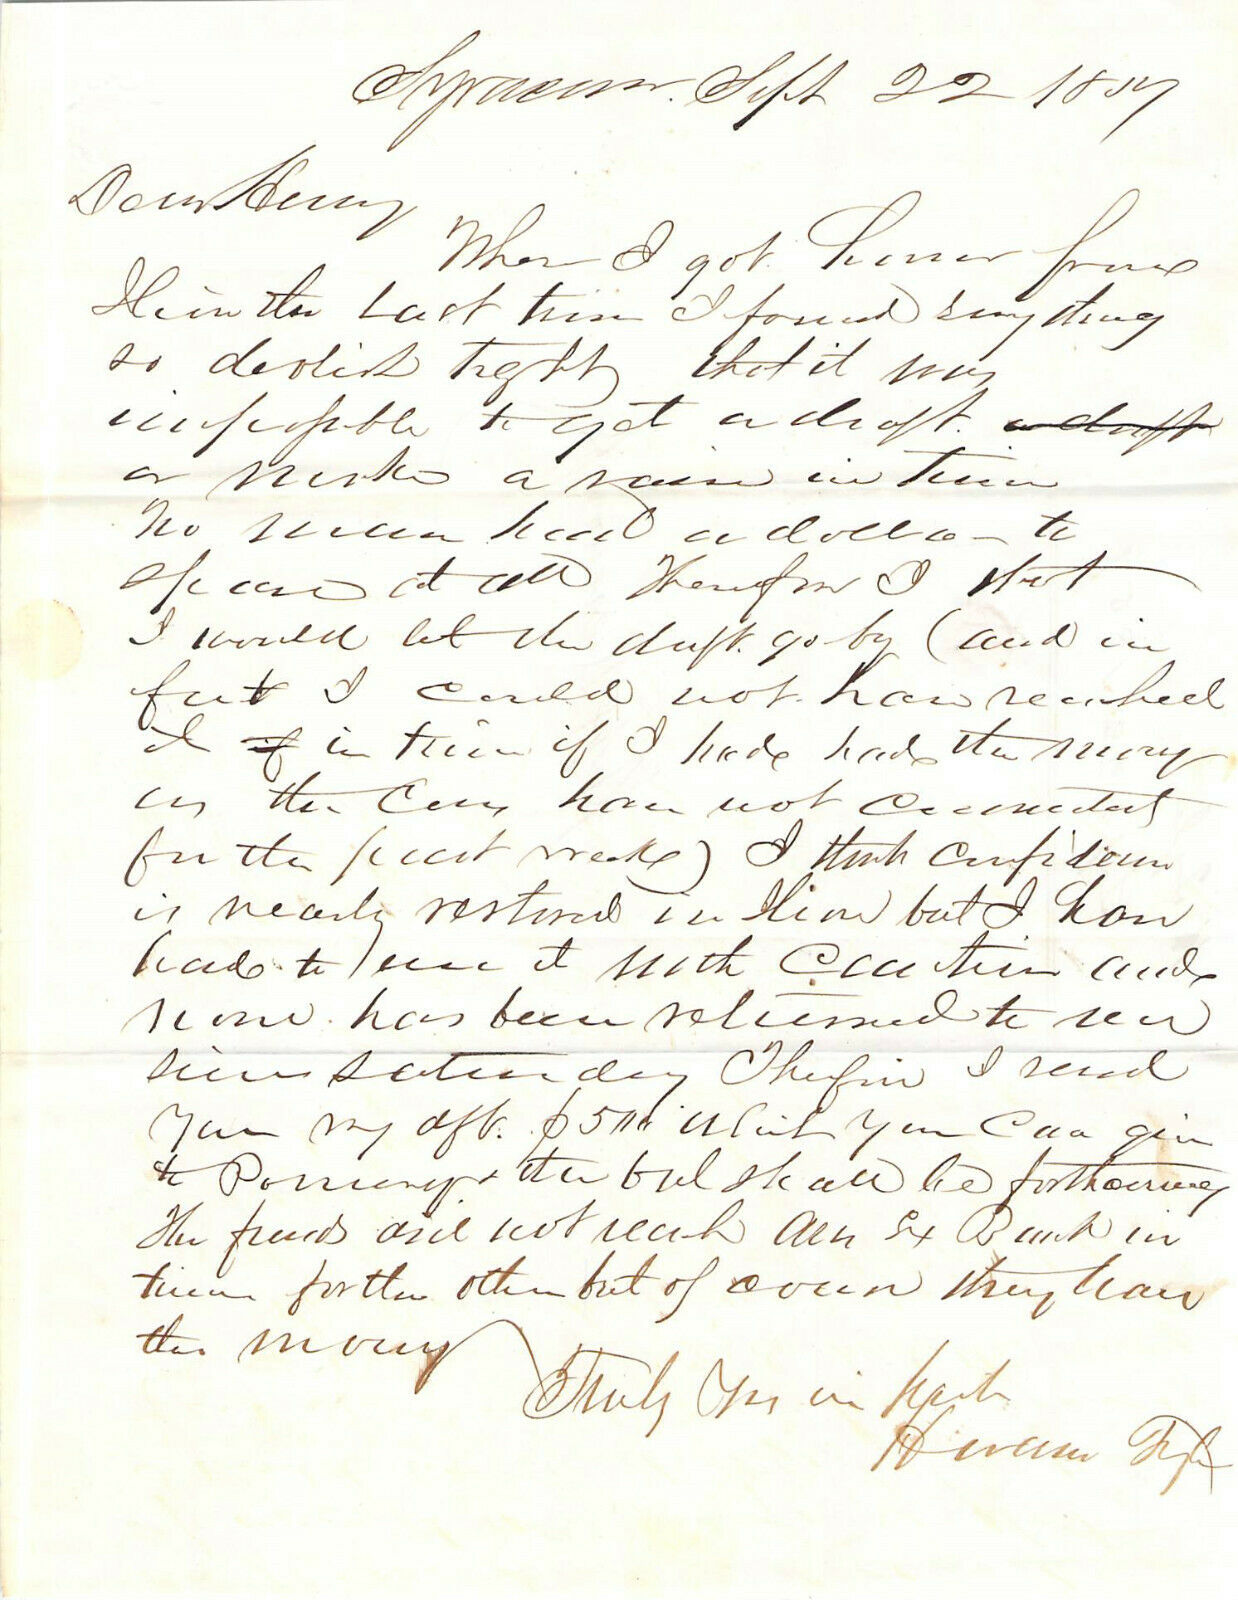 Syracuse. Sept 22 1857
Dear Henry
When I got home from
the last time I found everything
so devlish tight that it was
impossible to get a draft. a draft
or make a raise in time
No man had a dollar to
spare at all Therefore I thot
I would let the draft go by (and in
fact I could not have reached
it if in time if I had had the money
as the Cars have not connected
for the past week) I think confidence
is nearly restored in but I have
had to use it with Caution and
none has been returned to me
since saturday Therefore I send
You my dft. $500 which You Can give
to Pomeroy & the bal shall be forthcoming
The funds will not reach Am Ex Bank in
time for the other but of course they have
the money
Truly Yrs in haste
Hiram